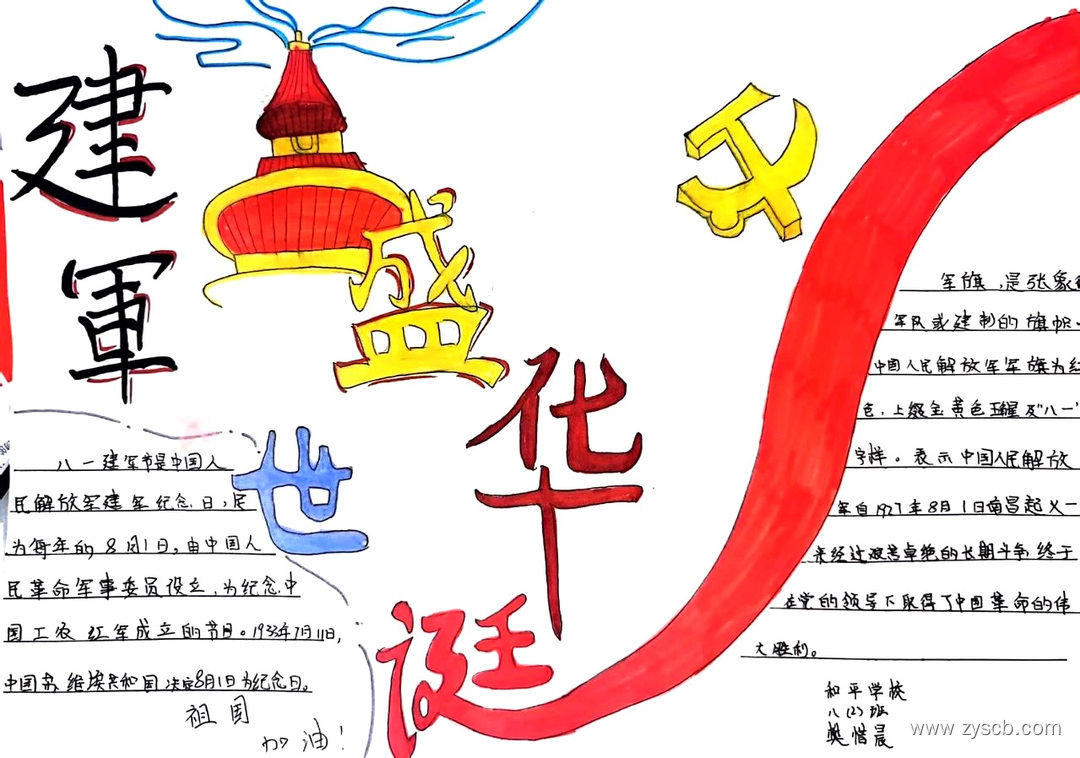 建
軍
盛
世
华
诞
八一建军节是中国人
民解放军建军纪念日,定
为每年的8月1日,由中国人
民革命军事委员设立,为纪念中
国工农红军成立的节日。1933年7月11日,
中国苏维埃共和国决定8月1日为纪念日。
祖国
加油!
军旗,是张象
军队或建制的旗帜。
中国人民解放军军旗为红
色,上缀金黄色五星及"八一"
字样。表示中国人民解放
军自1927年8月1日南昌起义一
来经过艰苦卓绝的长期斗争,终于
在党的领导下取得了中国革命的伟
大胜利。
和平学校
八(2)班
樊惜晨
www.zyscb.com